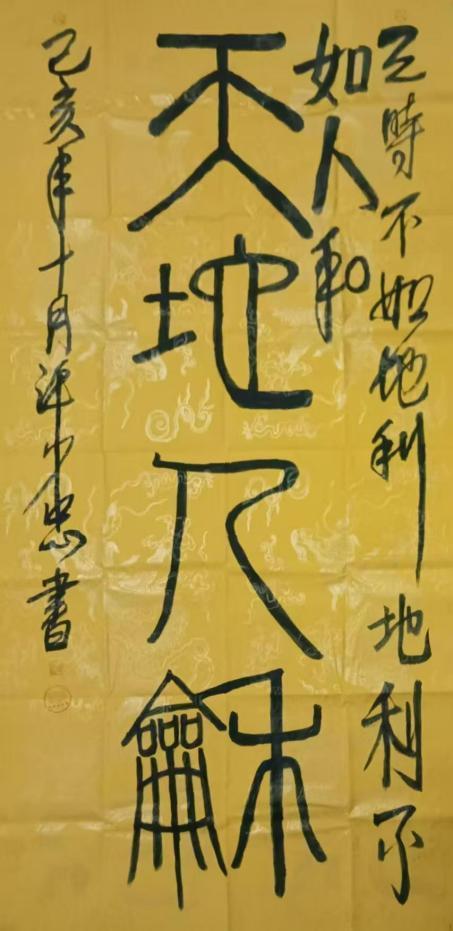 天時不如地利地利不
如人和
天地人龢
己亥年十月許中忠書